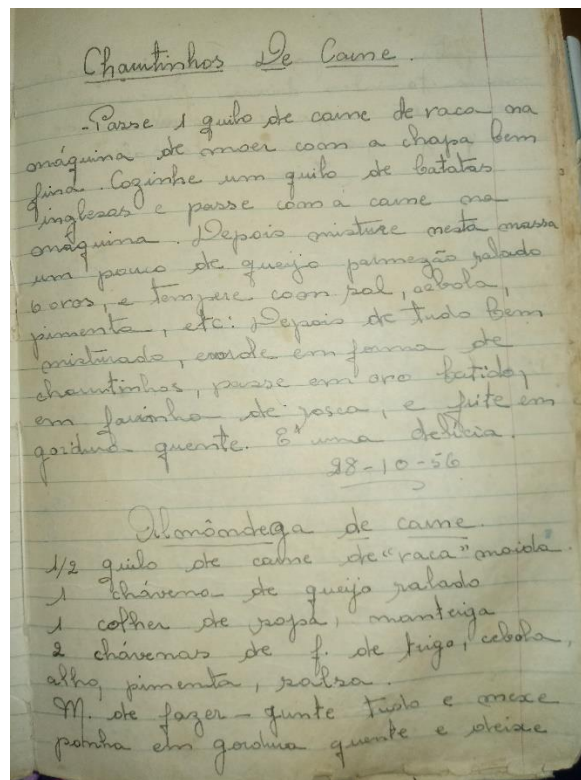 Charutinhos De Carne.
-Passe 1 quilo de carne de vaca na
máquina de moer com a chapa bem
fina. Cozinhe um quilo de batatas
inglezas e passe com a carne na
máquina. Depois misture nesta massa
um pouco de queijo parmezão ralado
6 ovos, e tempere com sal, cebola,
pimenta, etc: Depois de tudo bem
misturado, enrole em forma de
charutinhos, passe em ovo batido,
em farinha de rosca, e frite em
gordura quente. E' uma delícia.
28-10-56
Almôndega de carne.
1/2 quilo de carne de "vaca" moida.
1 chávena de queijo ralado
1 colher de sopa, manteiga
2 chávenas de f. de trigo, cebola,
alho, pimenta, salsa.
M. de fazer - gunte tudo e mexe
ponha em gordura quente e deixe